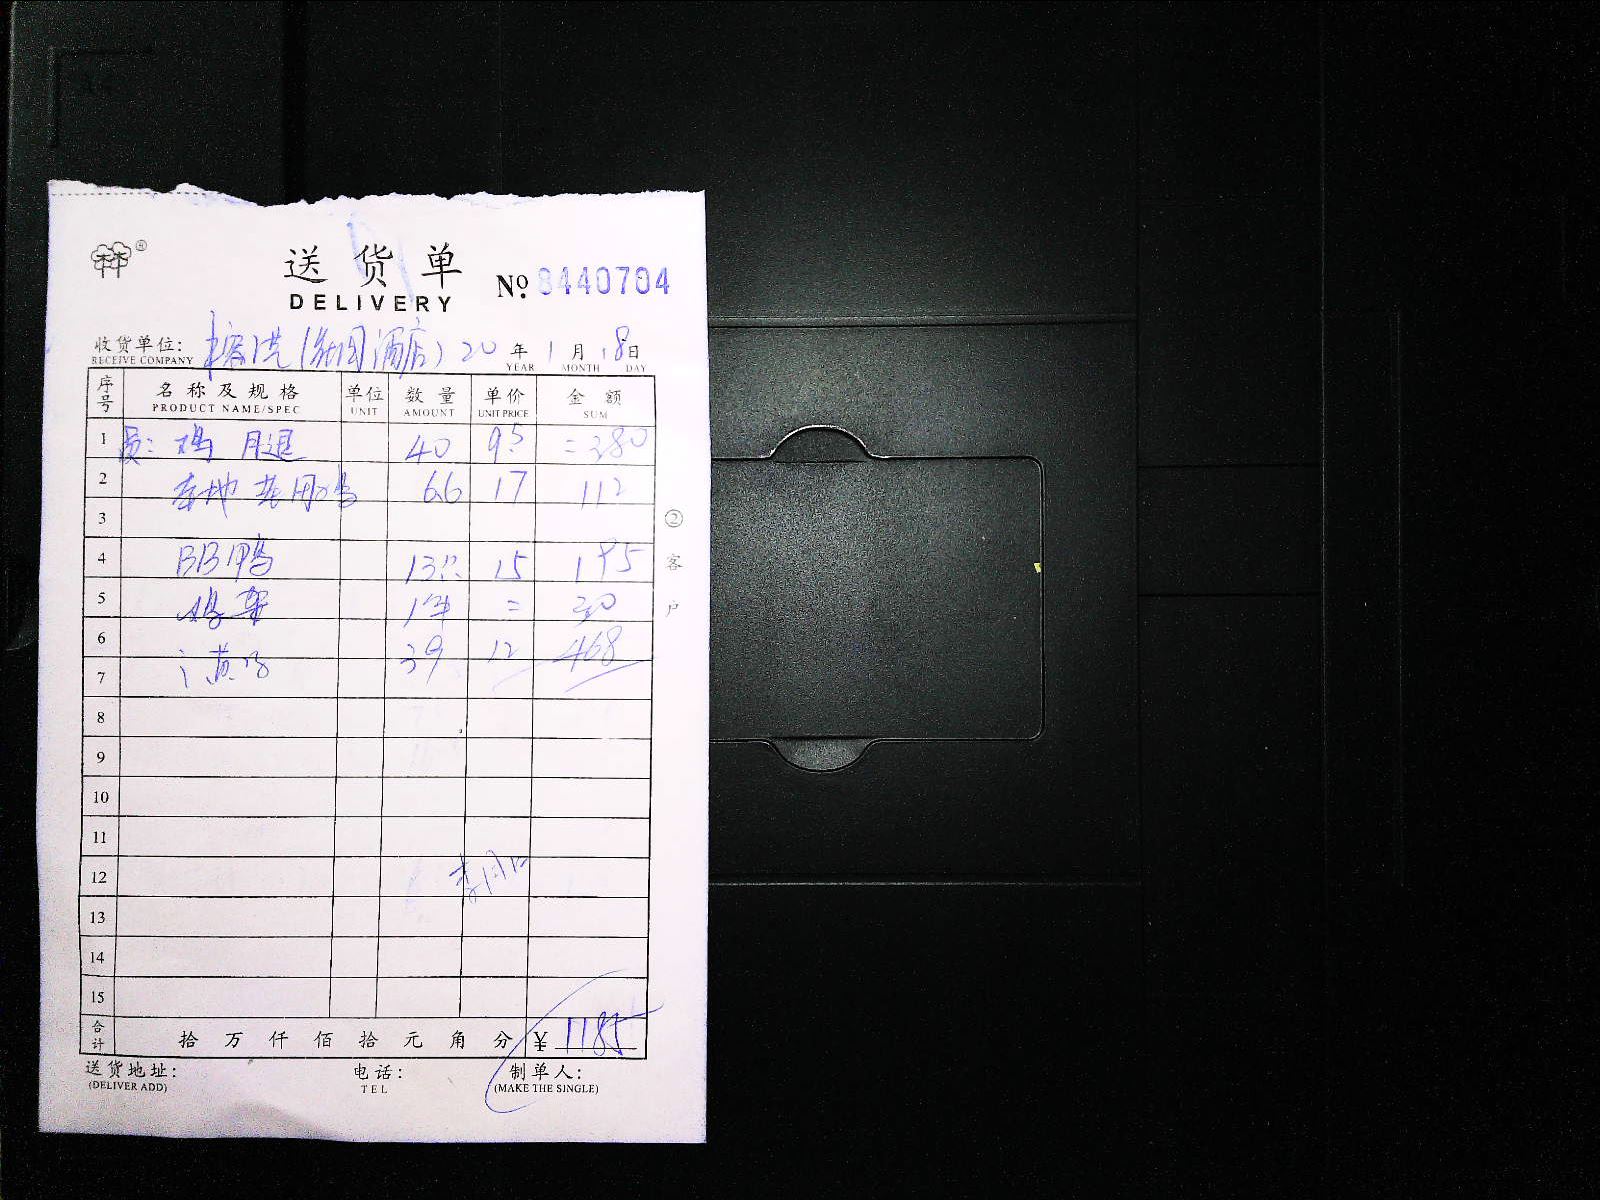 送货单
DELIVERY
№ 8440704
收货单位: 酒店) 20年1月18日
RECEIVE COMPANY YEAR MONTH DAY
序号 名称及规格 单位 数量 单价 金额
PRODUCT NAME/SPEC UNIT AMOUNT UNIT PRICE SUM
1 鸡 40 95 =380
2 本地 66 17 112
3
4 BB鸭 13只 15 195
5 鸡架 1件 = 30
6 39 12 468
7
8
9
10
11
12
13
14
15
合计 拾 万 仟 佰 拾 元 角 分 ¥1185
送货地址: 电话: 制单人:
(DELIVER ADD) TEL (MAKE THE SINGLE)
② 客户